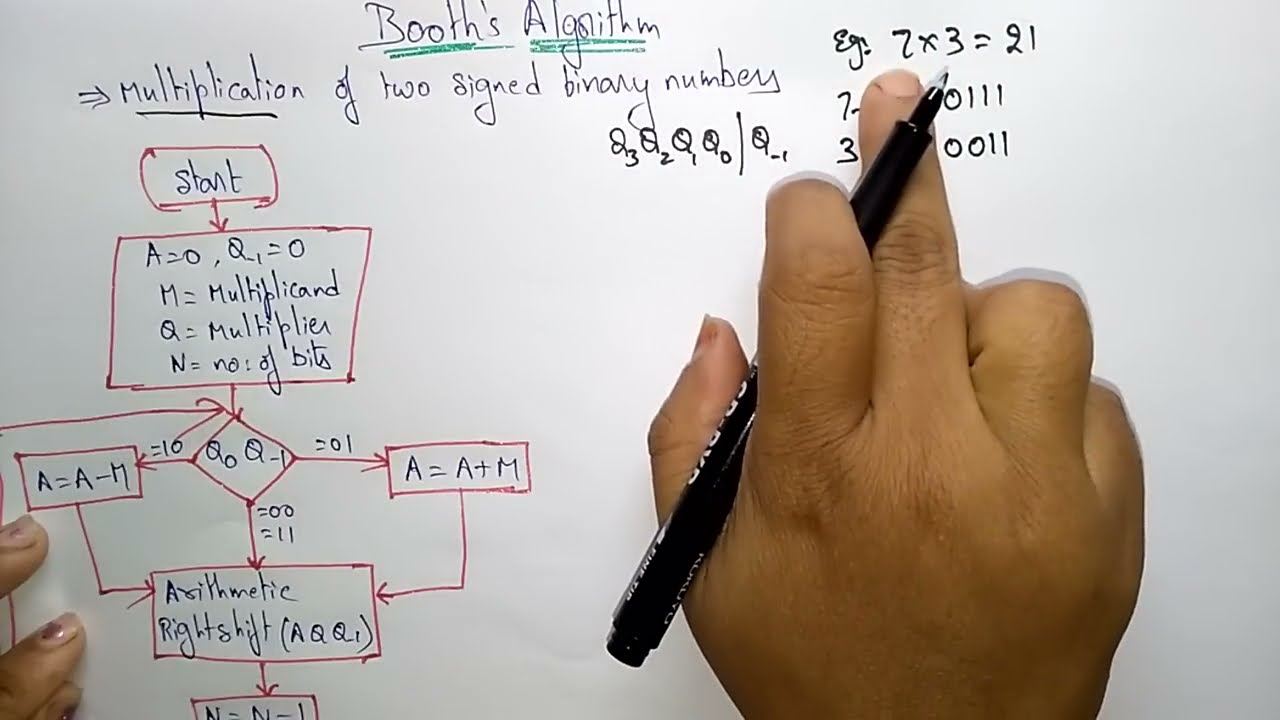 Booth's Algorithm
⇒ Multiplication of two signed binary numbers
Eg: 7×3 = 21
7 0111
3 0011
Q₃ Q₂ Q₁ Q₀ | Q₋₁
Start
A=0 , Q₋₁=0
M= Multiplicand
Q= Multiplier
N= no: of bits
Q₀ Q₋₁
=10
=01
=00
=11
A=A-M
A = A+M
Arithmetic
Rightshift (A Q Q₋₁)
N = N-1